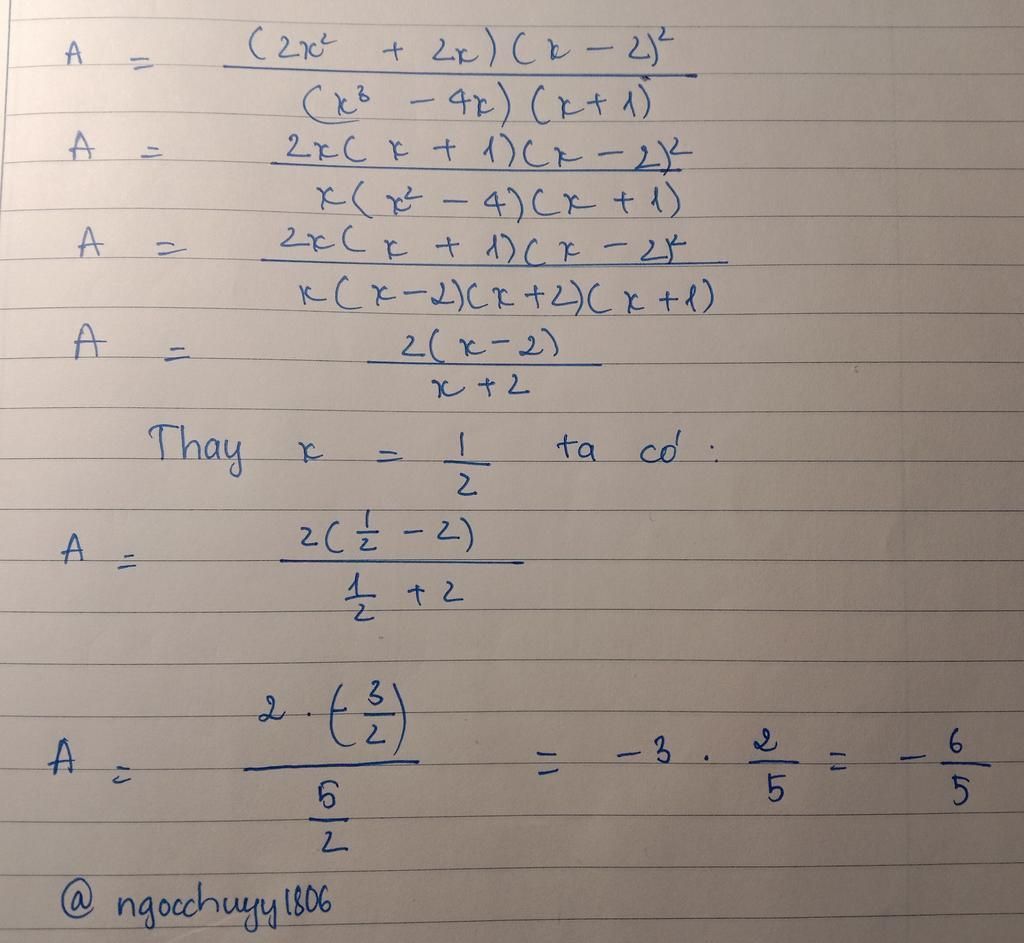 A = (2x² + 2x)(x - 2)² / (x³ - 4x)(x + 1)
A = 2x(x + 1)(x - 2)² / x(x² - 4)(x + 1)
A = 2x(x + 1)(x - 2)² / x(x - 2)(x + 2)(x + 1)
A = 2(x - 2) / x + 2
Thay x = 1/2 ta có :
A = 2(1/2 - 2) / 1/2 + 2
A = 2 . (-3/2) / 5/2 = -3 . 2/5 = -6/5
@ ngocchuyy1806